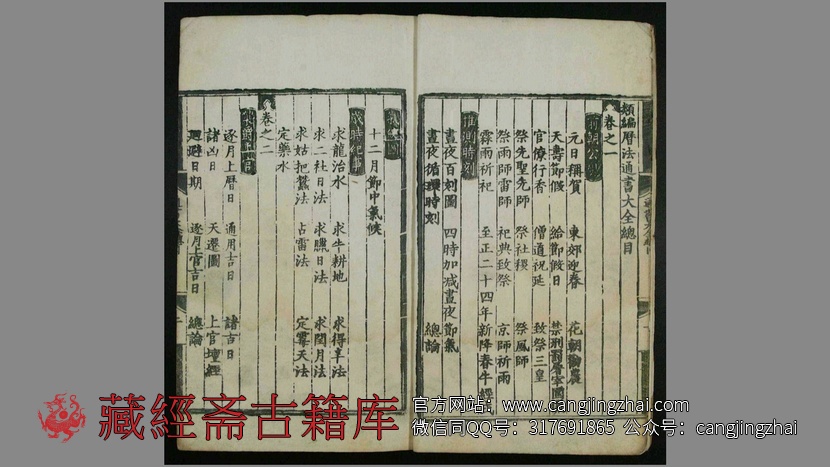 類編曆法通書大全總目
卷之一
元日稱賀 東郊迎春 花朝勸農
天壽節假 給節假日
官僚行香 僧道祝延 致祭三皇
祭先聖先師 祭社稷 祭風師
祭雨師雷師 祀典致祭 京師祈雨
霖雨祈祀 至正二十四年新降春牛經
晝夜百刻圖 四時加減晝夜節氣 總論
晝夜循環時刻
十二月節中氣候
歲時紀事
求龍治水 求牛耕地 求得辛法
求二社日法 求臘日法 求閏月法
求姑把蠶法 占雷法 定霉天法
定藥水
卷之二
逐月上曆日 通用吉日 諸吉日
諸凶日 天遷圖 上官壇經
迴避日期 逐月上官吉日 總論
藏經斋古籍库
官方网站：www.cangjingzhai.com
微信同QQ号：317691865 公众号：cangjingzhai